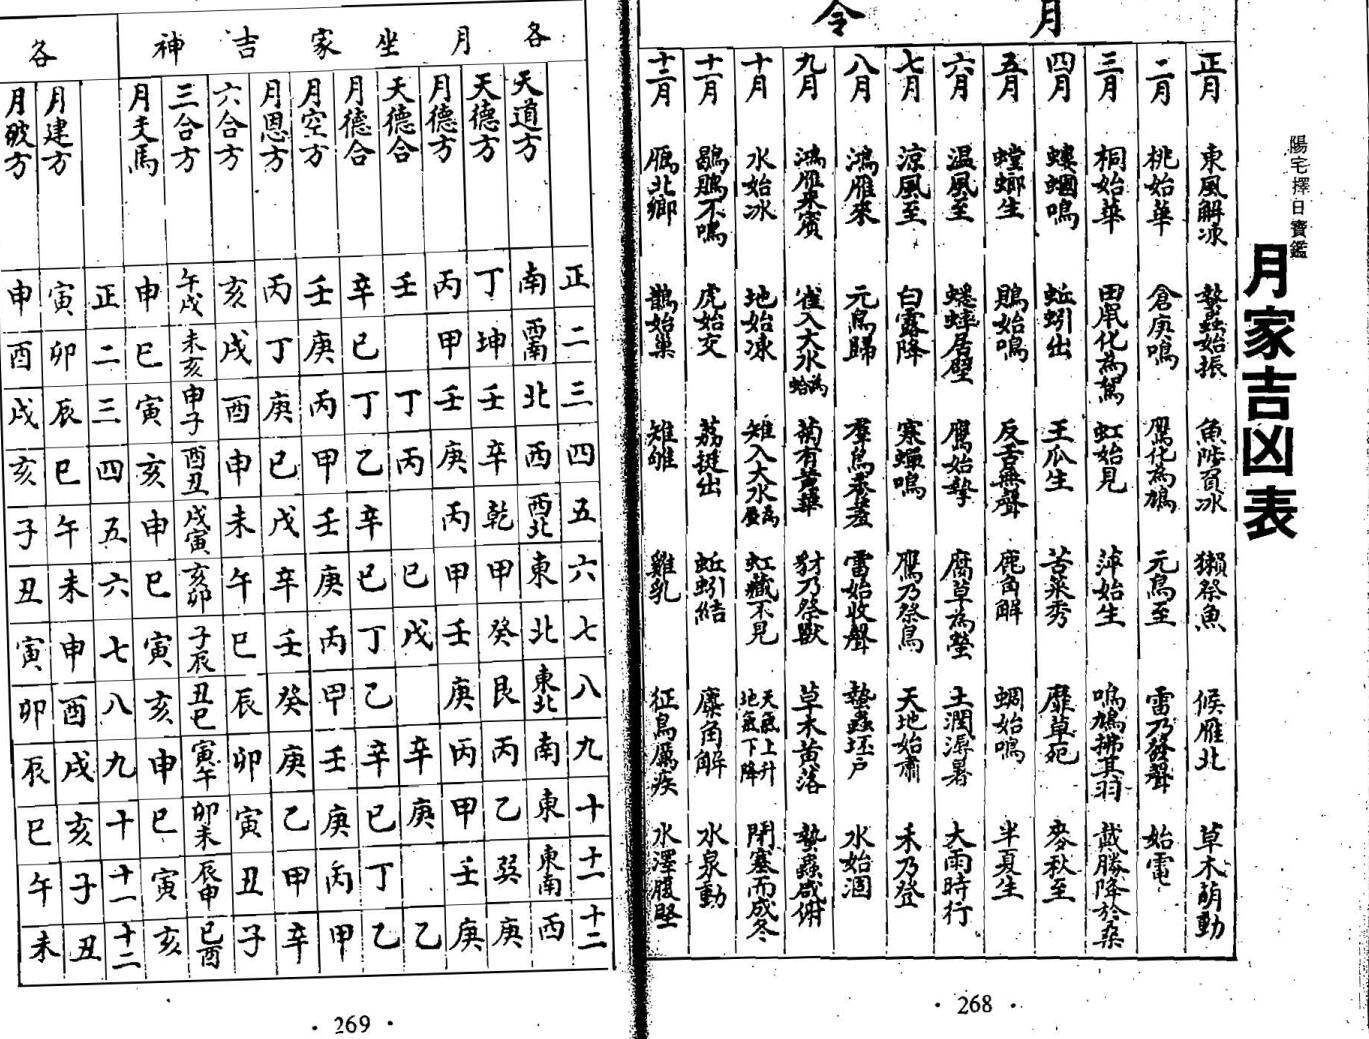 陽宅擇日寶鑑
月家吉凶表
月令
正月 東風解凍 蟄蟲始振 魚陟負冰 獺祭魚 候雁北 草木萌動
二月 桃始華 倉庚鳴 鷹化為鳩 元鳥至 雷乃發聲 始電
三月 桐始華 田鼠化為鴽 虹始見 萍始生 鳴鳩拂其羽 戴勝降於桑
四月 螻蟈鳴 蚯蚓出 王瓜生 苦菜秀 靡草死 麥秋至
五月 螳螂生 鵙始鳴 反舌無聲 鹿角解 蜩始鳴 半夏生
六月 温風至 蟋蟀居壁 鷹始摯 腐草為螢 土潤溽暑 大雨時行
七月 涼風至 白露降 寒蟬鳴 鷹乃祭鳥 天地始肅 禾乃登
八月 鴻雁來 元鳥歸 羣鳥養羞 雷始收聲 蟄蟲坯戶 水始涸
九月 鴻雁來賓 雀入大水為蛤 菊有黃華 豺乃祭獸 草木黃落 蟄蟲咸俯
十月 水始冰 地始凍 雉入大水為蜃 虹藏不見 天氣上升地氣下降 閉塞而成冬
十一月 鶡鵙不鳴 虎始交 荔挺出 蚯蚓結 麋角解 水泉動
十二月 雁北鄉 鵲始巢 雉雊 雞乳 征鳥厲疾 水澤腹堅
· 268 ·
各月坐家吉神
正 二 三 四 五 六 七 八 九 十 十一 十二
天道方 南 西南 北 西 西北 東 北 東北 南 東 東南 西
天德方 丁 坤 壬 辛 乾 甲 癸 艮 丙 乙 巽 庚
月德方 丙 甲 壬 庚 丙 甲 壬 庚 丙 甲 壬 庚
天德合 壬 丁 丙 己 戊 辛 庚 乙
月德合 辛 己 丁 乙 辛 己 丁 乙 辛 己 丁 乙
月空方 壬 庚 丙 甲 壬 庚 丙 甲 壬 庚 丙 甲
月恩方 丙 丁 庚 己 戊 辛 壬 癸 庚 乙 甲 辛
六合方 亥 戌 酉 申 未 午 巳 辰 卯 寅 丑 子
三合方 午戌 未亥 申子 酉丑 戌寅 亥卯 子辰 丑巳 寅午 卯未 辰申 巳酉
月支馬 申 巳 寅 亥 申 巳 寅 亥 申 巳 寅 亥
各
正 二 三 四 五 六 七 八 九 十 十一 十二
月建方 寅 卯 辰 巳 午 未 申 酉 戌 亥 子 丑
月破方 申 酉 戌 亥 子 丑 寅 卯 辰 巳 午 未
· 269 ·